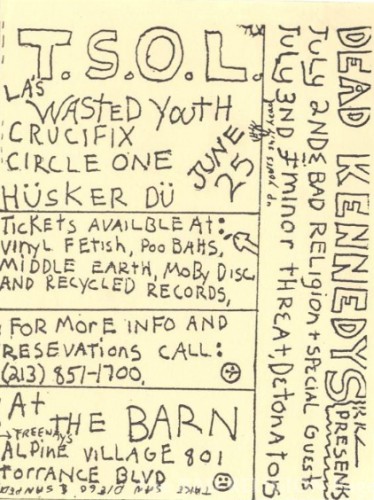 T.S.O.L.
LA'S
WASTED YOUTH
CRUCIFIX
CIRCLE ONE
HÜSKER DÜ
JUNE
25
TH
TICKETS AVAILBLE AT:
VINYL FETISH, POO BAHS,
MIDDLE EARTH, MOBY DISC
AND RECYCLED RECORDS,
FOR MORE INFO AND
RESEVATIONS CALL:
(213) 851-1700,
At
THE BARN
→ FREEWAYS
ALPINE VILLAGE 801
TORRANCE BLVD
TAKE SAN DIEGO & SAN PEDRO
DEAD KENNEDYS
PRESENTS
JULY 2ND: BAD RELIGION + SPECIAL GUESTS
JULY 3ND # MINOR THREAT, DETONATORS